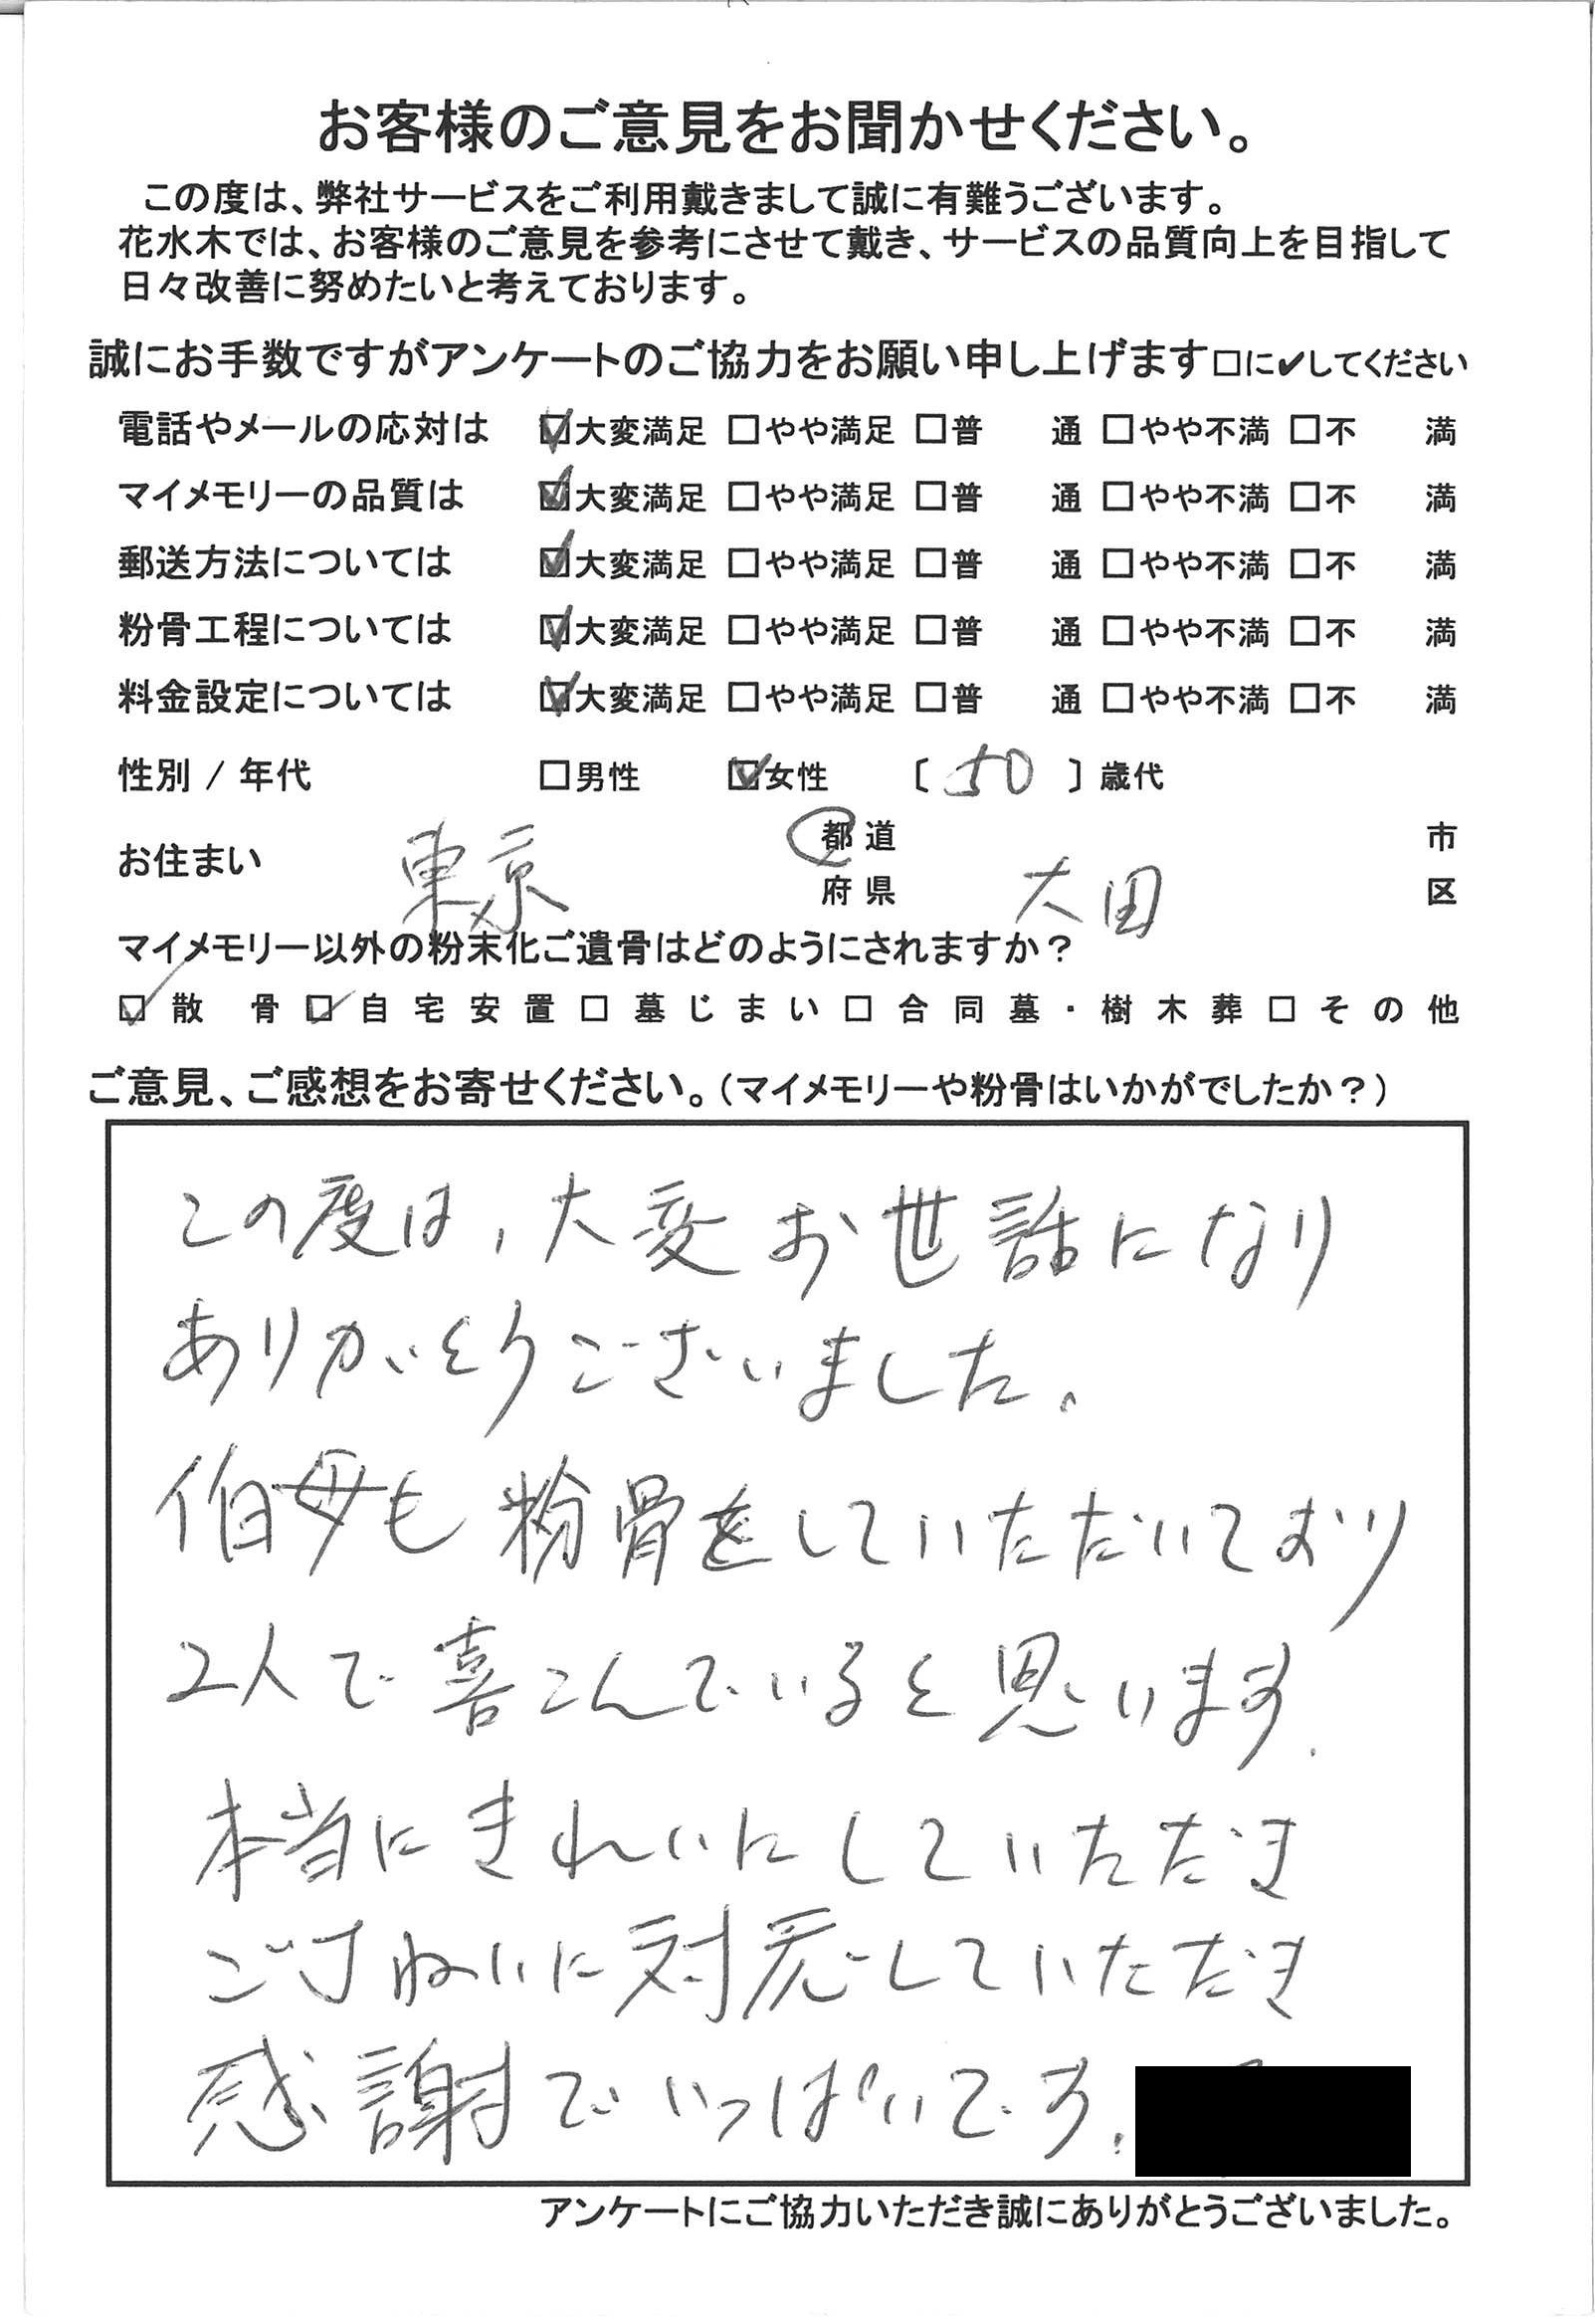 お客様のご意見をお聞かせください。
この度は、弊社サービスをご利用戴きまして誠に有難うございます。
花水木では、お客様のご意見を参考にさせて戴き、サービスの品質向上を目指して
日々改善に努めたいと考えております。
誠にお手数ですがアンケートのご協力をお願い申し上げます□に✔してください
電話やメールの応対は ☑大変満足 □やや満足 □普 通 □やや不満 □不 満
マイメモリーの品質は ☑大変満足 □やや満足 □普 通 □やや不満 □不 満
郵送方法については ☑大変満足 □やや満足 □普 通 □やや不満 □不 満
粉骨工程については ☑大変満足 □やや満足 □普 通 □やや不満 □不 満
料金設定については ☑大変満足 □やや満足 □普 通 □やや不満 □不 満
性別 / 年代 □男性 ☑女性 〔 50 〕歳代
お住まい 東京 都道府県 大田 市区
マイメモリー以外の粉末化ご遺骨はどのようにされますか？
☑散 骨 ☑自宅安置 □墓じまい □合同墓・樹木葬 □その他
ご意見、ご感想をお寄せください。（マイメモリーや粉骨はいかがでしたか？）
この度は、大変お世話になり
ありがとうございました。
伯母も粉骨をしていただいており
2人で喜こんでいると思います.
本当にきれいにしていただき
ご丁ねいに対応していただき
感謝でいっぱいです.
アンケートにご協力いただき誠にありがとうございました。